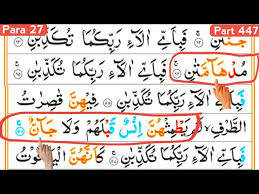 Para 27 Part 447
جَنَّتٰنِ ﴿٦٢﴾ فَبِاَيِّ اٰلَآءِ رَبِّكُمَا تُكَذِّبٰنِ
مُدْهَآمَّتٰنِ فَبِاَيِّ اٰلَآءِ رَبِّكُمَا تُكَذِّبٰنِ
فَبِاَيِّ اٰلَآءِ رَبِّكُمَا تُكَذِّبٰنِ فِيْهِنَّ قٰصِرٰتُ
الطَّرْفِ لَمْ يَطْمِثْهُنَّ اِنْسٌ قَبْلَهُمْ وَلَا جَآنٌّ
فَبِاَيِّ اٰلَآءِ رَبِّكُمَا تُكَذِّبٰنِ كَاَنَّهُنَّ الْيَاقُوْتُ